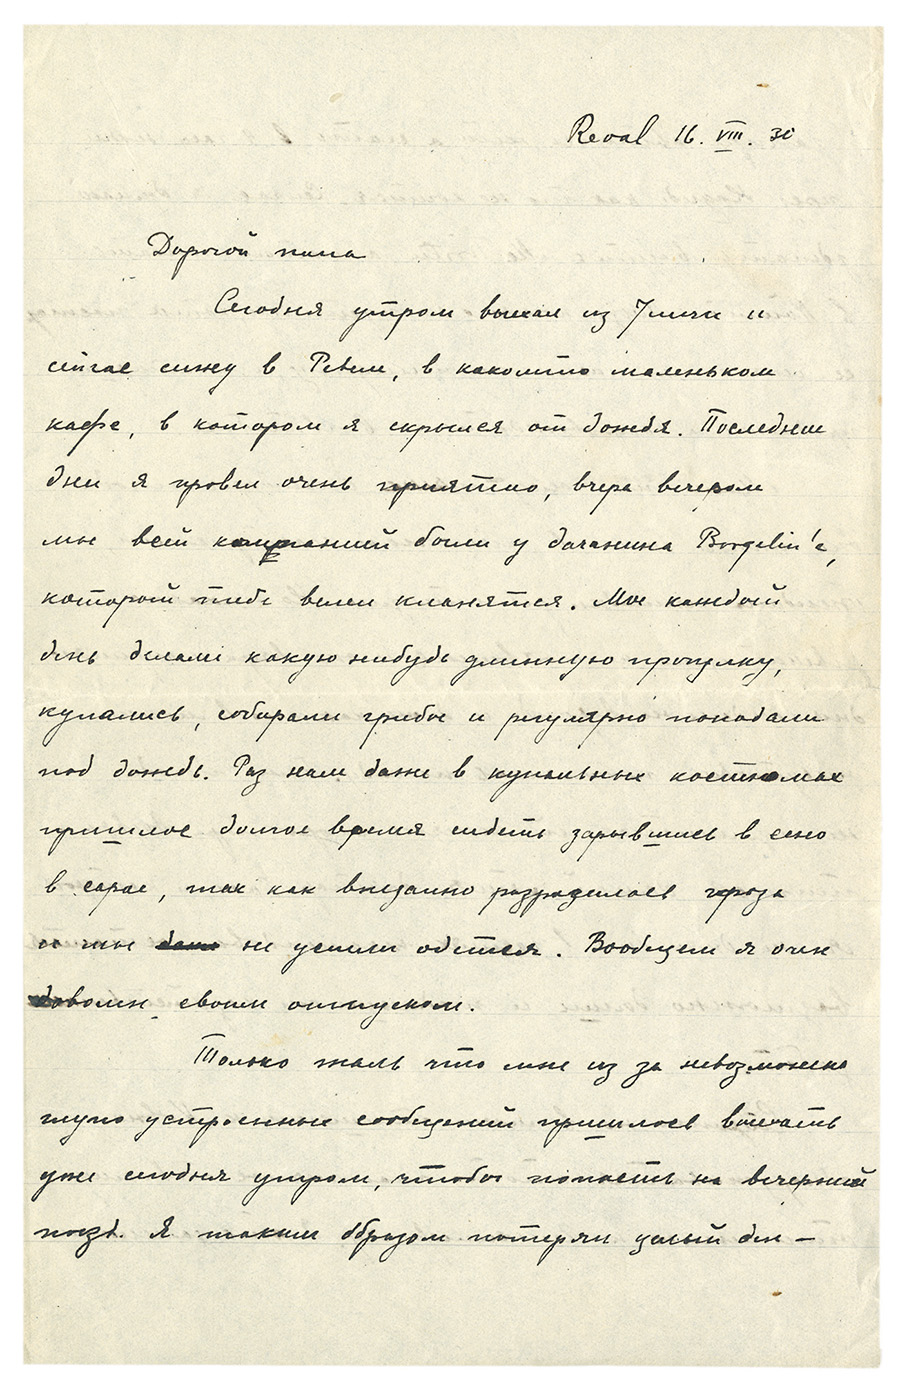 Reval 16. VIII. 30
Дорогой папа
Сегодня утром выехал из и
сейчас сижу в Ревеле, в какомто маленьком
кафе, в котором я скрылся от дождя. Последние
дни я провел очень приятно, вчера вечером
мы всей компанией были у датчанина Borgelin'а,
который тебе велел кланятся. Мы каждый
день делали какую нибудь длинную прогулку,
купались, собирали грибы и регулярно попадали
под дождь. Раз нам даже в купальных костюмах
пришлос долгое время сидеть зарывшись в сено
в сарае, так как внезапно разразилась гроза
и мы не успели одется. Вообщем я очен
доволен своим отпуском.
Только жаль что мне из за невозможно
глупо устроенных сообщений пришлось выехать
уже сегодня утром, чтобы попасть на вечерний
поезд. Я таким образом потерял целый ден –